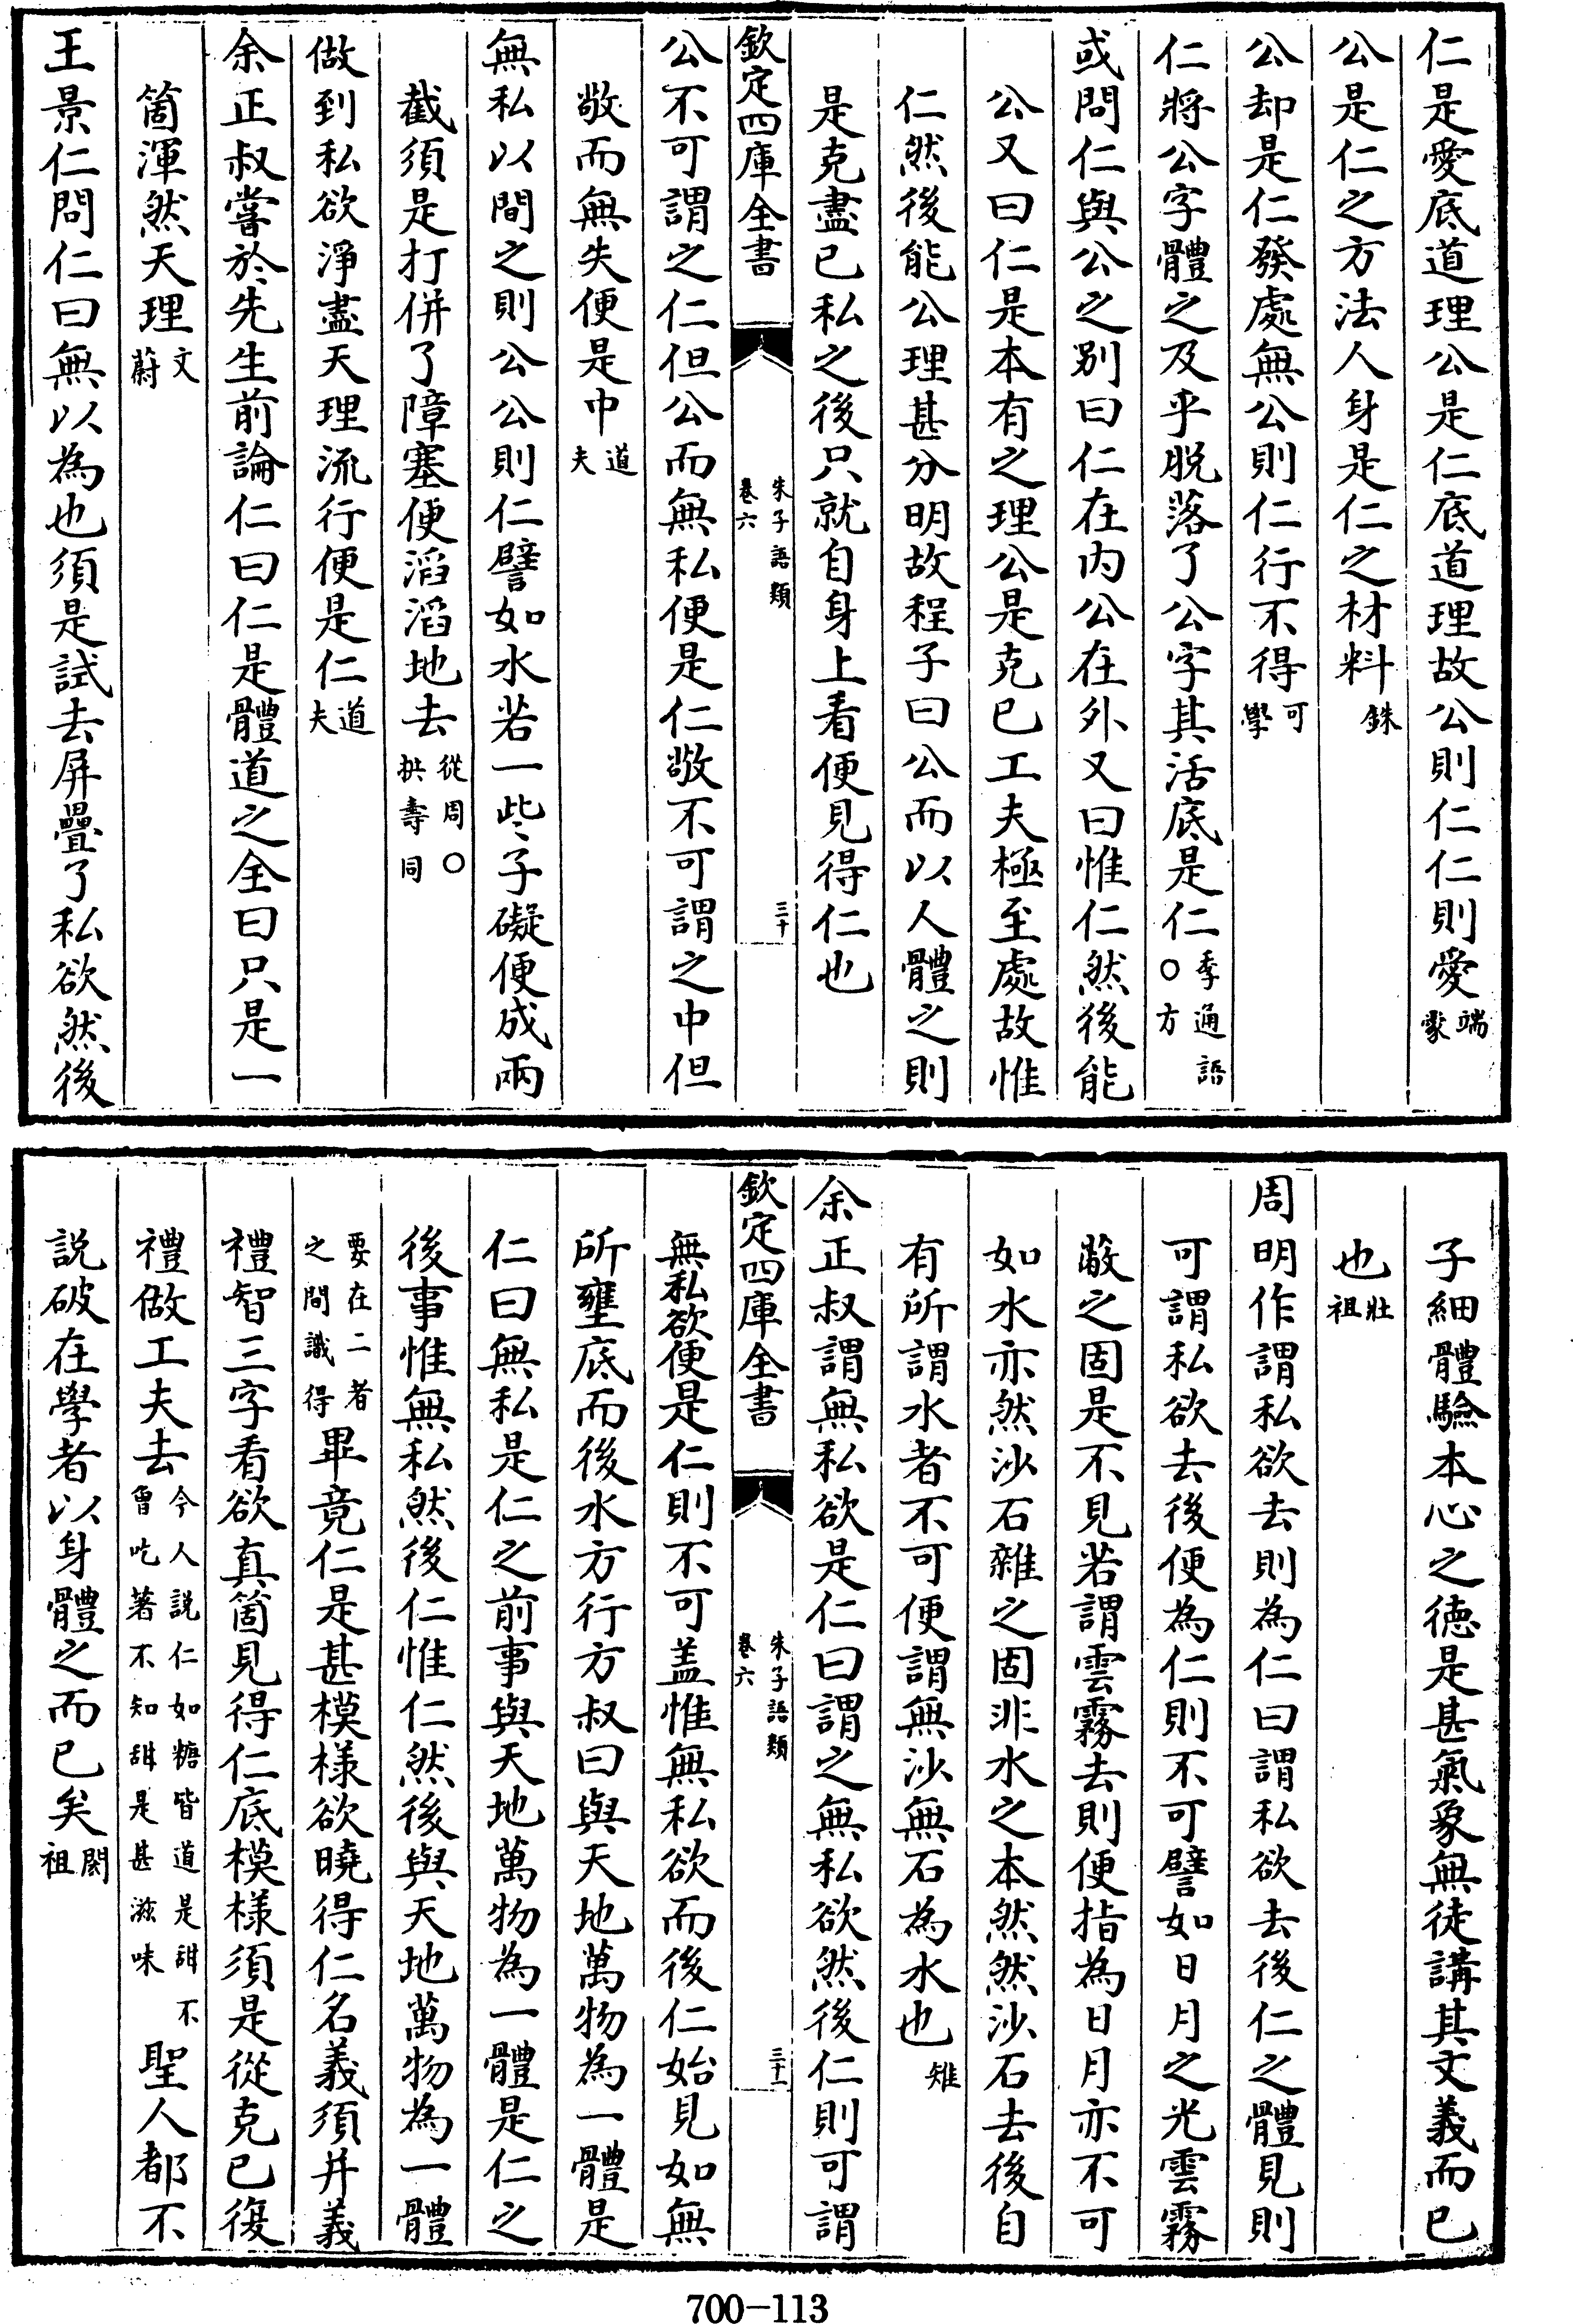 仁是愛底道理公是仁底道理故公則仁仁則愛端蒙
公是仁之方法人身是仁之材料銖
公却是仁發處無公則仁行不得可學
仁將公字體之及乎脱落了公字其活底是仁季通語○方
或問仁與公之别曰仁在内公在外又曰惟仁然後能
公又曰仁是本有之理公是克已工夫極至處故惟
仁然後能公理甚分明故程子曰公而以人體之則
是克盡已私之後只就自身上看便見得仁也
欽定四庫全書 朱子語類卷六 三十
公不可謂之仁但公而無私便是仁敬不可謂之中但
敬而無失便是中道夫
無私以間之則公公則仁譬如水若一些子礙便成兩
截須是打併了障塞便滔滔地去從周○拱壽同
做到私欲淨盡天理流行便是仁道夫
余正叔嘗於先生前論仁曰仁是體道之全曰只是一
箇渾然天理文蔚
王景仁問仁曰無以為也須是試去屏疊了私欲然後
子細體驗本心之德是甚氣象無徒講其文義而已
也壯祖
周明作謂私欲去則為仁曰謂私欲去後仁之體見則
可謂私欲去後便為仁則不可譬如日月之光雲霧
蔽之固是不見若謂雲霧去則便指為日月亦不可
如水亦然沙石雜之固非水之本然然沙石去後自
有所謂水者不可便謂無沙無石為水也雉
余正叔謂無私欲是仁曰謂之無私欲然後仁則可謂
欽定四庫全書 朱子語類卷六 三十一
無私欲便是仁則不可盖惟無私欲而後仁始見如無
所壅底而後水方行方叔曰與天地萬物為一體是
仁曰無私是仁之前事與天地萬物為一體是仁之
後事惟無私然後仁惟仁然後與天地萬物為一體
要在二者之間識得畢竟仁是甚模様欲曉得仁名義須并義
禮智三字看欲真箇見得仁底模様須是從克已復
禮做工夫去今人説仁如糖皆道是甜不曾吃著不知甜是甚滋味聖人都不
説破在學者以身體之而已矣閎祖
700-113